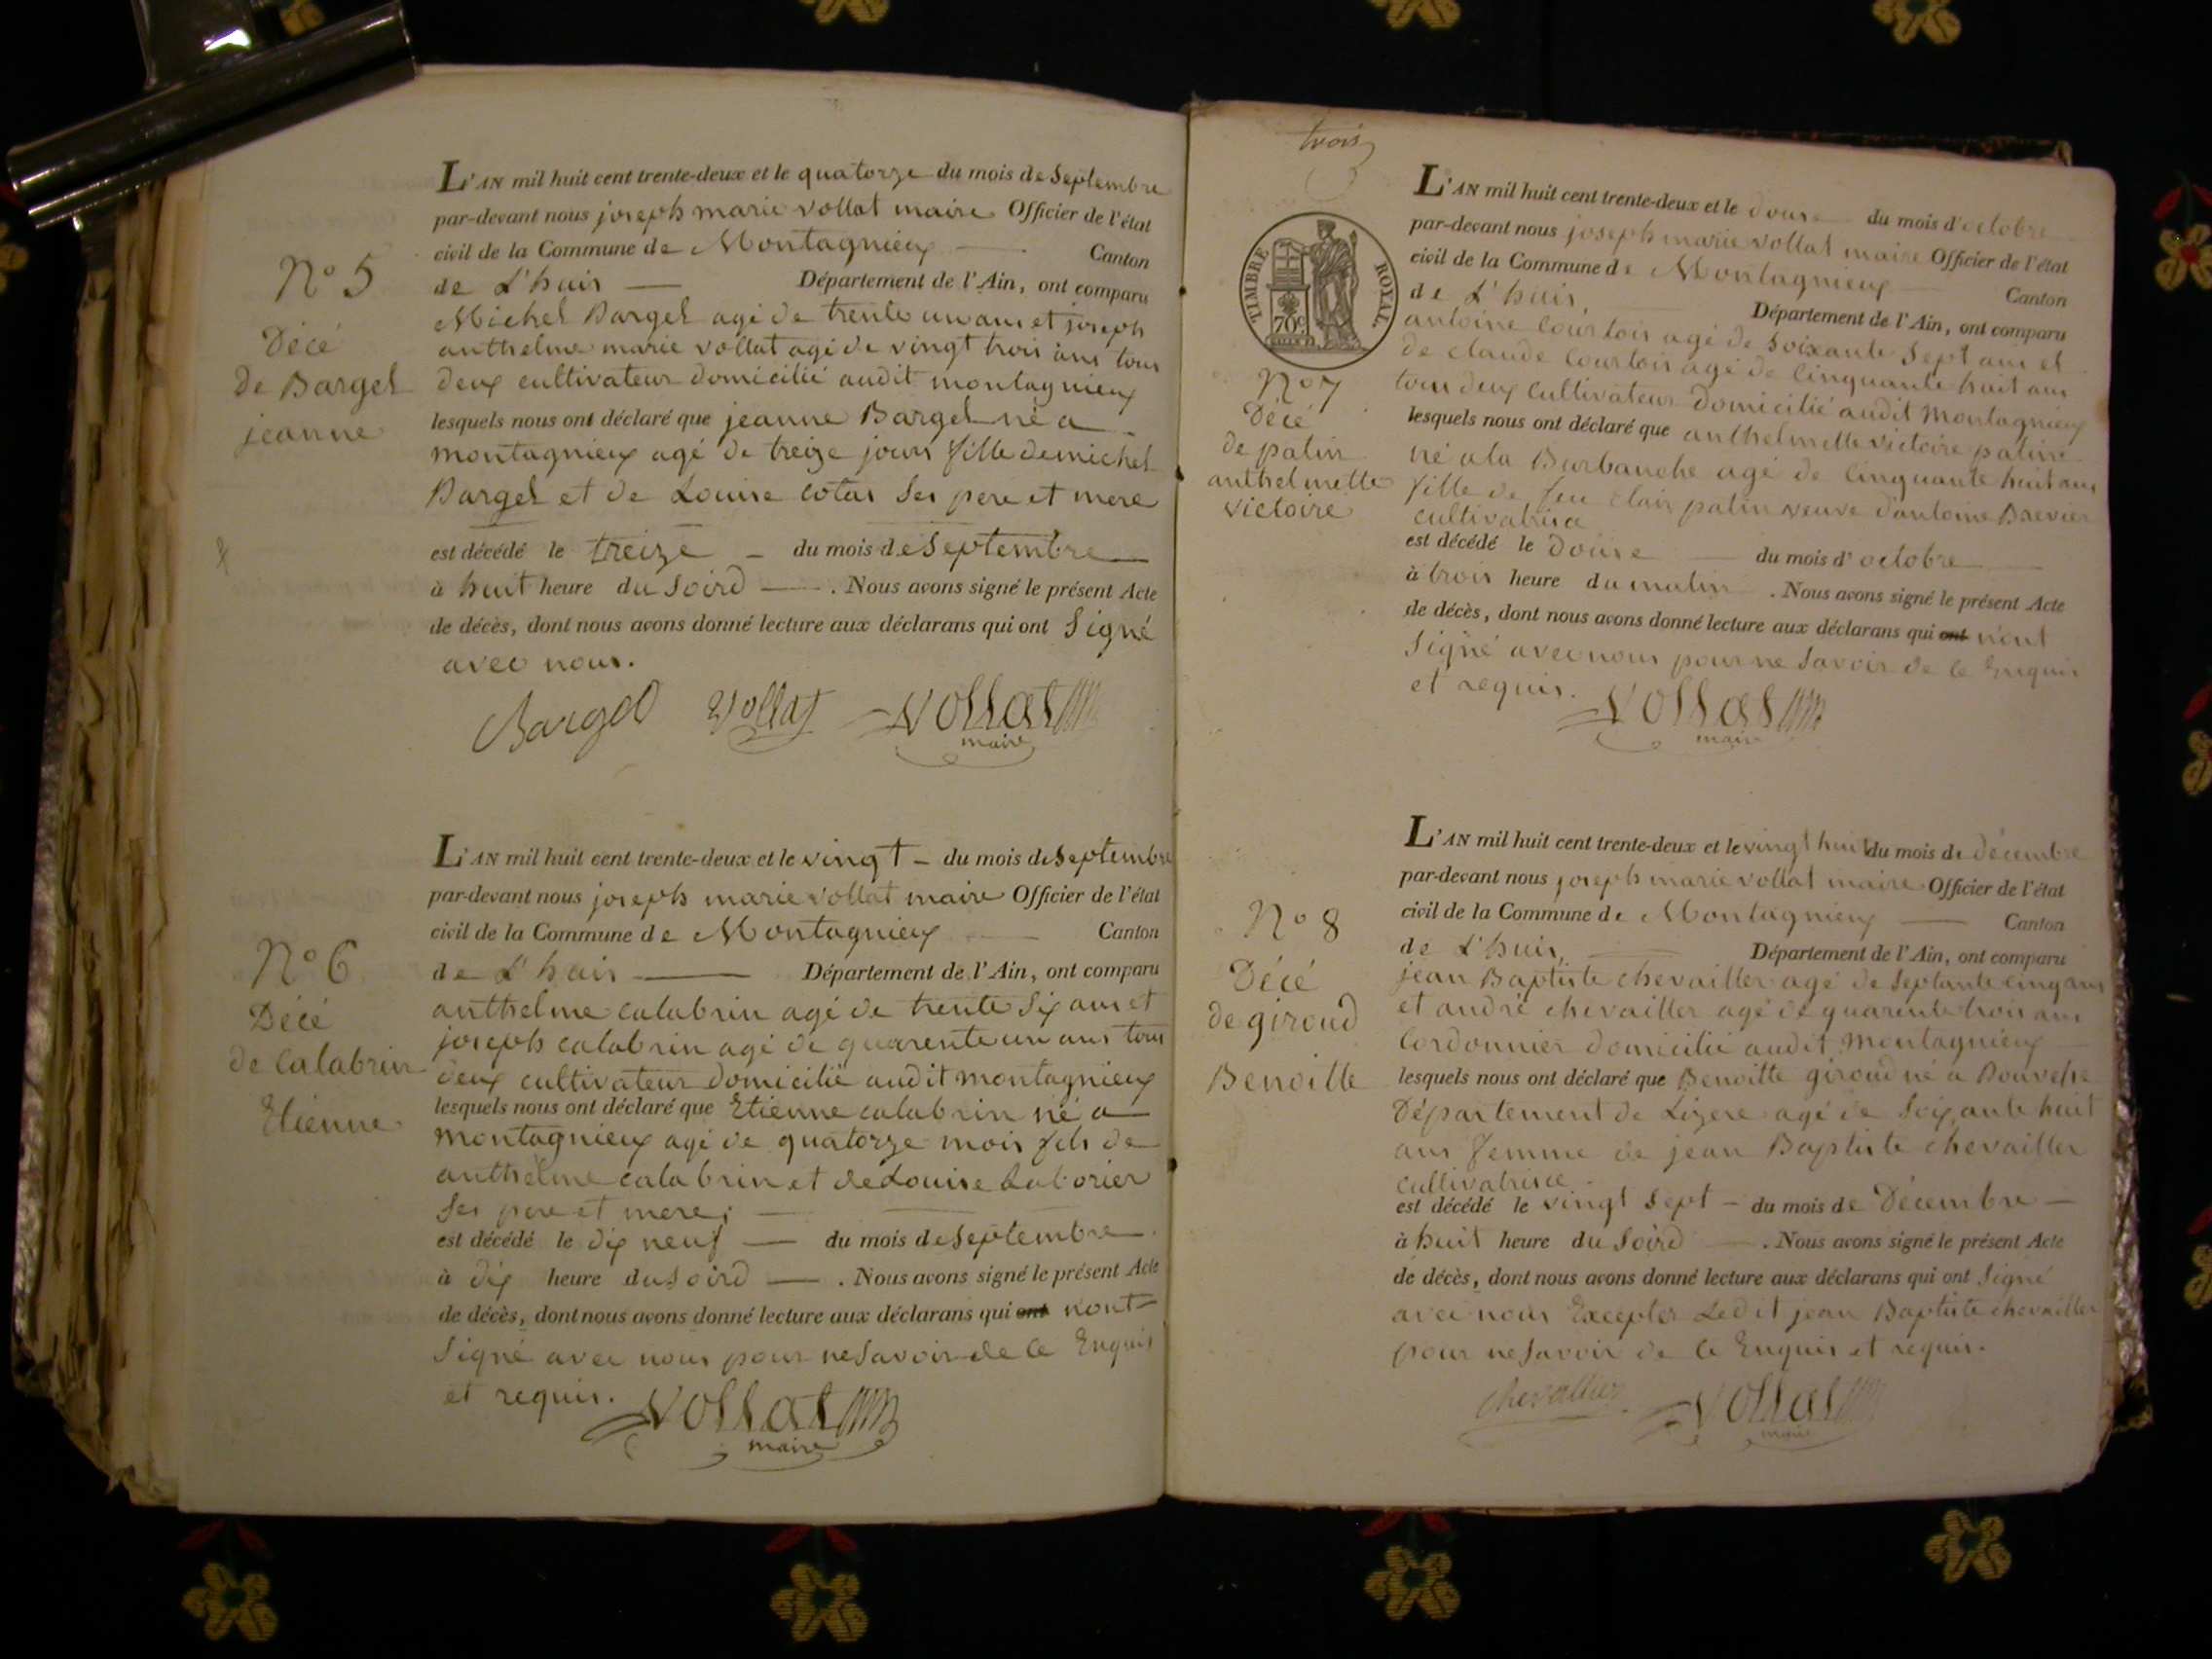 L'AN mil huit cent trente-deux et le quatorze du mois de Septembre
par-devant nous joseph marie vollat maire Officier de l'état
civil de la Commune de Montagnieux Canton
de L'huis Département de l'Ain, ont comparu
Michel Bargel agé de trente un ans et joseph
anthelme marie vollat agé de vingt trois ans tous
deux cultivateur domicilié audit montagnieux
lesquels nous ont déclaré que jeanne Bargel né a
montagnieux agé de treize jours fille de michel
Bargel et de Louise cotas ses pere et mere
est décédé le treize du mois de Septembre
à huit heure du Soird. Nous avons signé le présent Acte
de décès, dont nous avons donné lecture aux déclarans qui ont Signé
avec nous.
Bargel Vollat Vollat
maire
N° 5
Décé
de Bargel
jeanne
L'AN mil huit cent trente-deux et le vingt du mois de Septembre
par-devant nous joseph marie vollat maire Officier de l'état
civil de la Commune de Montagnieux Canton
de L'huis Département de l'Ain, ont comparu
anthelme calabrin agé de trente Six ans et
joseph calabrin agé de quarente un ans tous
deux cultivateur domicilié audit montagnieux
lesquels nous ont déclaré que Etienne calabrin né a
montagnieux agé de quatorze mois fils de
anthelme calabrin et de Louise Laborier
Ses pere et mere;
est décédé le dix neuf du mois de Septembre
à dix heure du Soird. Nous avons signé le présent Acte
de décès, dont nous avons donné lecture aux déclarans qui ont nont
Signé avec nous pour ne Savoir de ce Enquis
et requis. Vollat
maire
N° 6
Décé
de Calabrin
Etienne
trois
TIMBRE ROYAL.
70c
N° 7
Décé
de patin
anthelmette
victoire
L'AN mil huit cent trente-deux et le douse du mois d'octobre
par-devant nous joseph marie vollat maire Officier de l'état
civil de la Commune de Montagnieux Canton
de L'huis Département de l'Ain, ont comparu
antoine Courtois agé de Soixante Sept ans et
de claude Courtois agé de Cinquante huit ans
tous deux Cultivateur Domicilié audit Montagnieux
lesquels nous ont déclaré que anthelmette victoire patin
né a la Burbanche agé de Cinquante huit ans
fille de feu Clair patin veuve d'antoine
cultivatrise
est décédé le Douse du mois d'octobre
à trois heure du matin. Nous avons signé le présent Acte
de décès, dont nous avons donné lecture aux déclarans qui ont n'ont
Signé avec nous pour ne Savoir de ce Enquis
et requis. Vollat
maire
N° 8
Décé
de giroud
Benoitte
L'AN mil huit cent trente-deux et le vingt huit du mois de décembre
par-devant nous joseph marie vollat maire Officier de l'état
civil de la Commune de Montagnieux Canton
de L'huis, Département de l'Ain, ont comparu
jean Baptiste chevailler agé de Septante cinq ans
et andré chevailler agé de quarente trois ans
Cordonnier domicilié audit Montagnieux
lesquels nous ont déclaré que Benoitte giroud né a
Département de Lizere agé de Soixante huit
ans femme de jean Baptiste chevailler
cultivatrice
est décédé le vingt Sept du mois de Décembre
à huit heure du Soird. Nous avons signé le présent Acte
de décès, dont nous avons donné lecture aux déclarans qui ont Signé
avec nous Excepter Ledit jean Baptiste chevailler
pour ne Savoir de ce Enquis et requis.
chevallier Vollat
maire